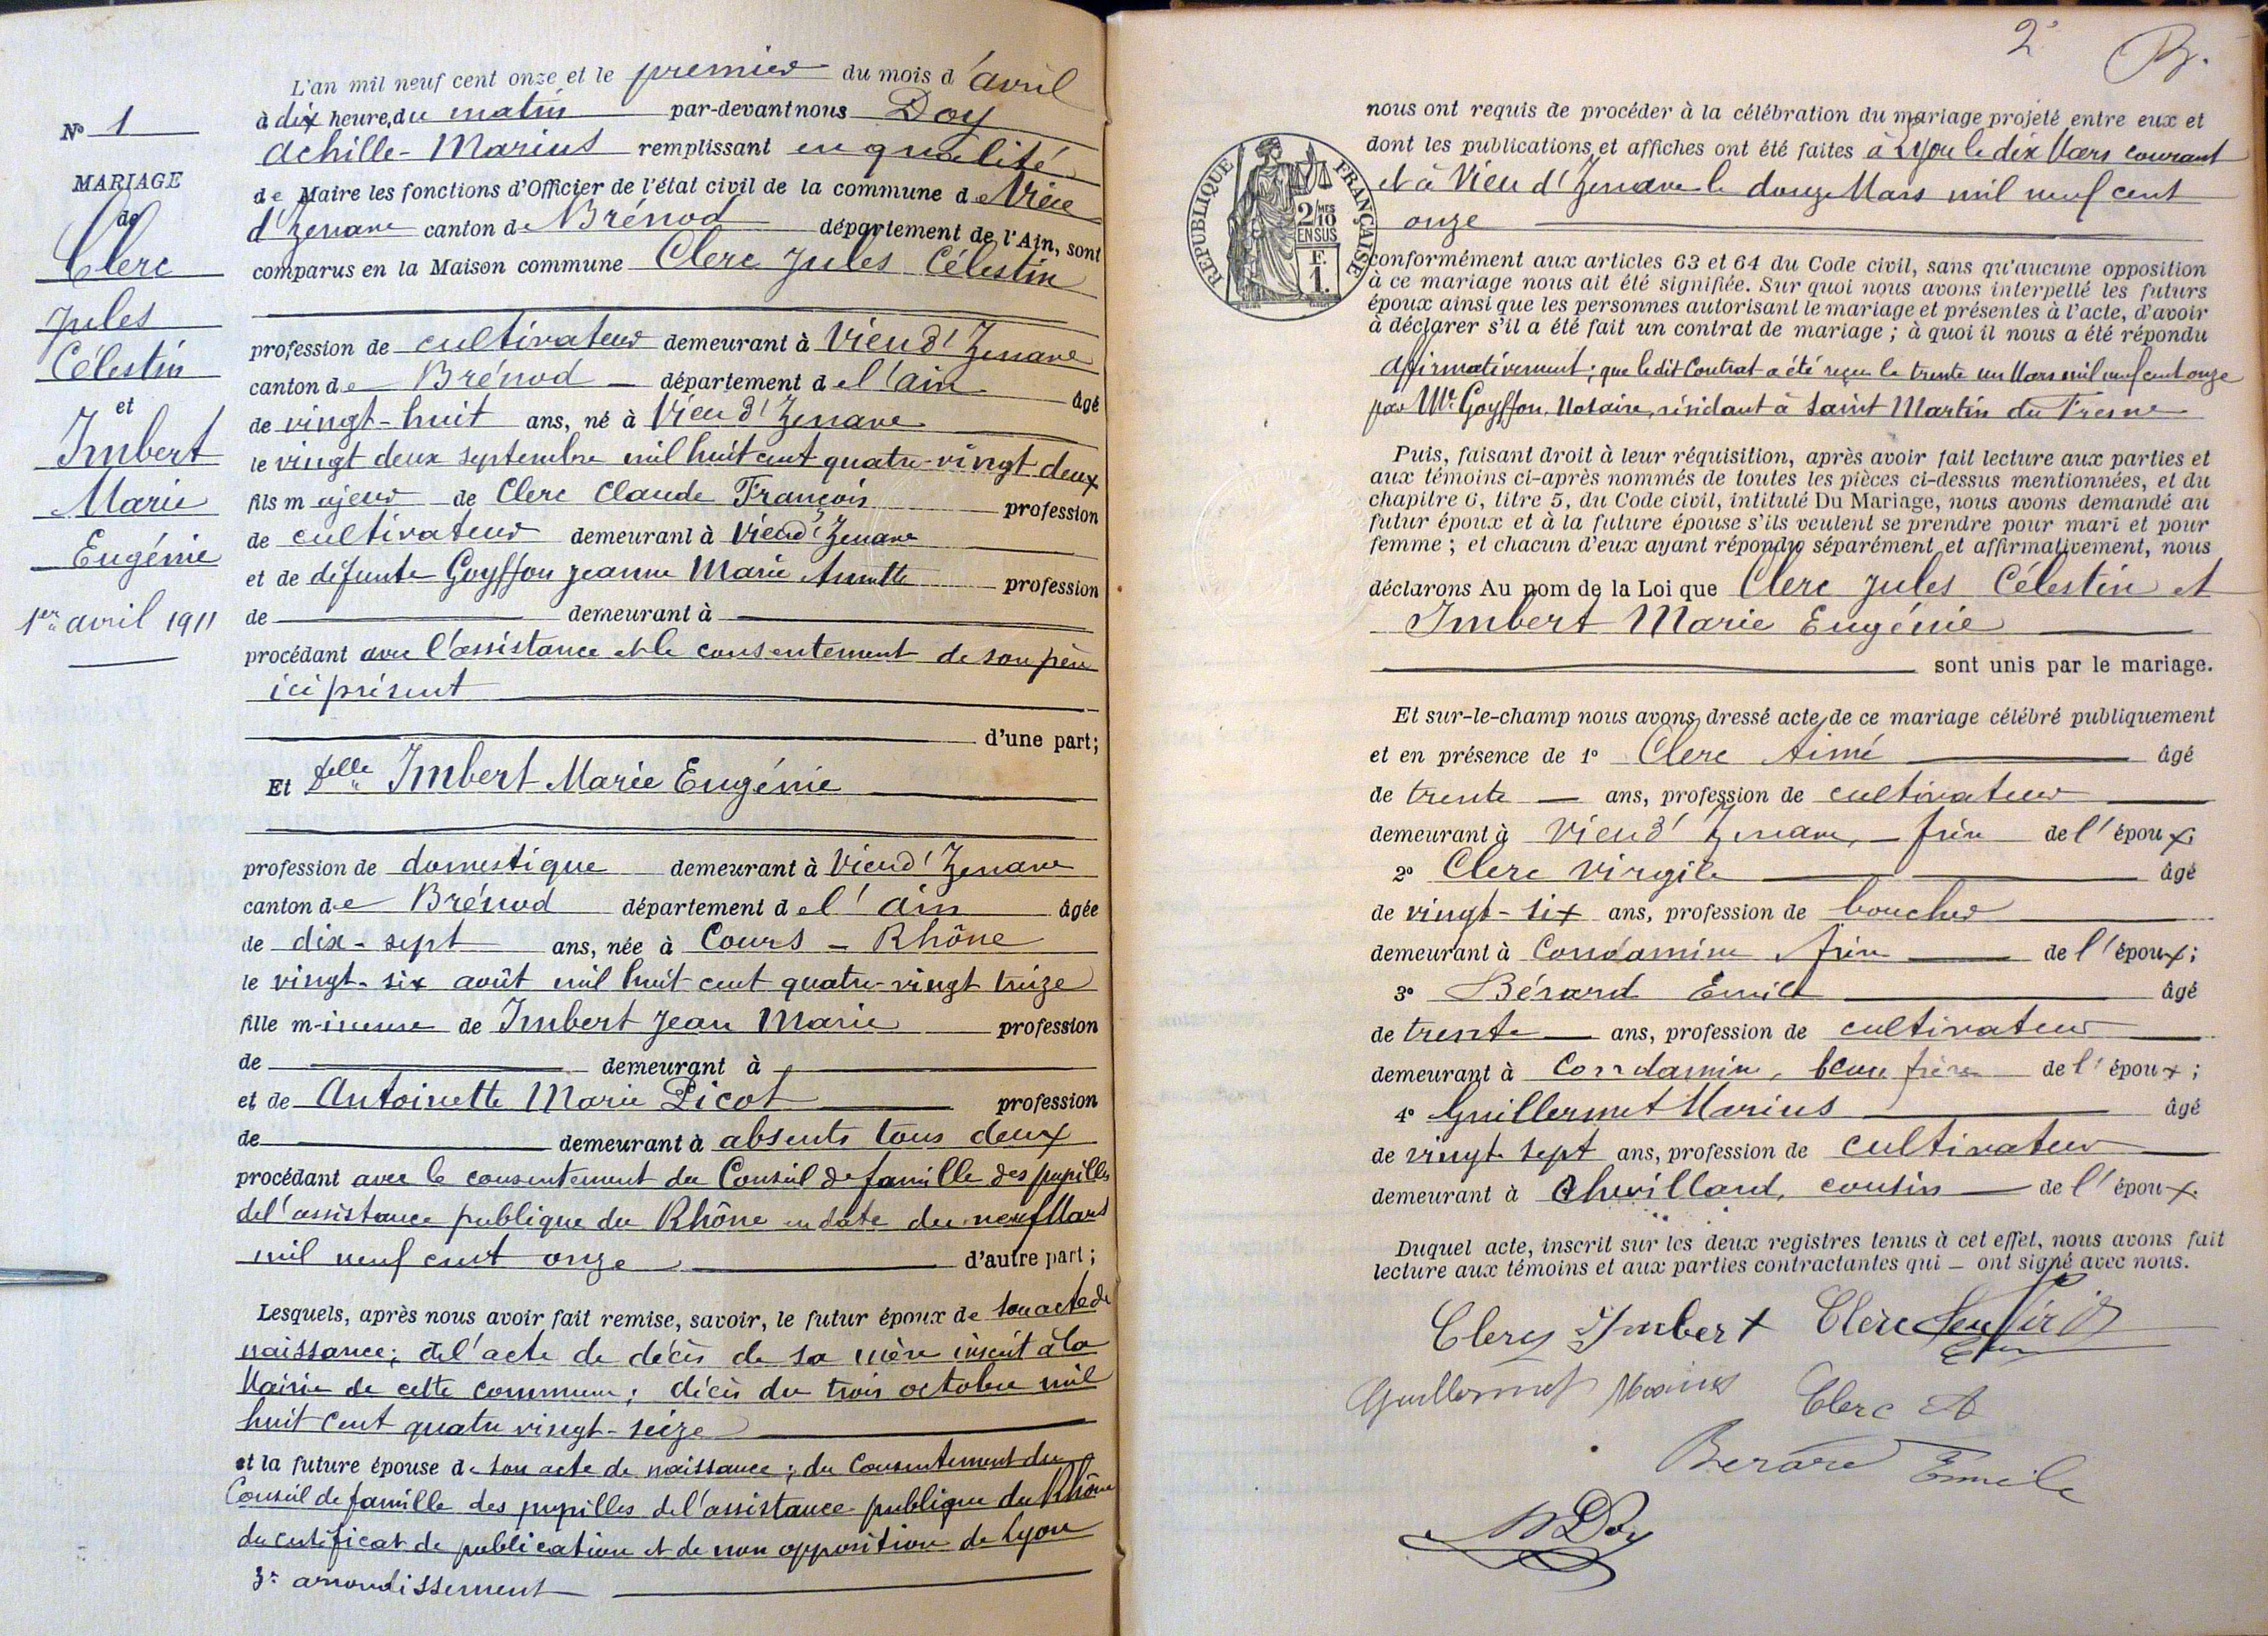 N° 1
MARIAGE
de
Clerc
Jules
Célestin
et
Imbert
Marie
Eugénie
1er avril 1911
L'an mil neuf cent onze et le premier du mois d'avril
à dix heure, du matin par-devant nous Doy
Achille-Marius remplissant en qualité
de Maire les fonctions d'Officier de l'état civil de la commune de Vieu
d'Izenave canton de Brénod département de l'Ain, sont
comparus en la Maison commune Clerc Jules Célestin
profession de cultivateur demeurant à Vieu d'Izenave
canton de Brénod département de l'Ain âgé
de vingt-huit ans, né à Vieu d'Izenave
le vingt deux septembre mil huit cent quatre-vingt deux
fils majeur de Clerc Claude François profession
de cultivateur demeurant à Vieu d'Izenave
et de défunte Goyffon Jeanne Marie Annette profession
de demeurant à
procédant avec l'assistance et le consentement de son père
ici présent
d'une part;
Et Delle Imbert Marie Eugénie
profession de domestique demeurant à Vieu d'Izenave
canton de Brénod département de l'Ain âgée
de dix-sept ans, née à Cours - Rhône
le vingt-six août mil huit cent quatre-vingt treize
fille m-ineure de Imbert Jean Marie profession
de demeurant à
et de Antoinette Marie Picot profession
de demeurant à absents tous deux
procédant avec le consentement du Conseil de famille des pupilles
de l'assistance publique du Rhône en date du neuf Mars
mil neuf cent onze d'autre part;
Lesquels, après nous avoir fait remise, savoir, le futur époux de son acte de
naissance; de l'acte de décès de sa mère inscrit à la
Mairie de cette commune; décès du trois octobre mil
huit cent quatre vingt-seize
et la future épouse de son acte de naissance; du Consentement du
Conseil de famille des pupilles de l'assistance publique du Rhône
du certificat de publication et de non opposition de Lyon
3e arrondissement
2
REPUBLIQUE FRANÇAISE
2/10 MES
EN SUS
F.
1.
nous ont requis de procéder à la célébration du mariage projeté entre eux et
dont les publications et affiches ont été faites à Lyon le dix Mars courant
et à Vieu d'Izenave le douze Mars mil neuf cent
onze
conformément aux articles 63 et 64 du Code civil, sans qu'aucune opposition
à ce mariage nous ait été signifiée. Sur quoi nous avons interpellé les futurs
époux ainsi que les personnes autorisant le mariage et présentes à l'acte, d'avoir
à déclarer s'il a été fait un contrat de mariage; à quoi il nous a été répondu
Affirmativement; que ledit Contrat a été reçu le trente un Mars mil neuf cent onze
par Me Goyffon, Notaire, résidant à Saint Martin du Fresne
Puis, faisant droit à leur réquisition, après avoir fait lecture aux parties et
aux témoins ci-après nommés de toutes les pièces ci-dessus mentionnées, et du
chapitre 6, titre 5, du Code civil, intitulé Du Mariage, nous avons demandé au
futur époux et à la future épouse s'ils veulent se prendre pour mari et pour
femme; et chacun d'eux ayant répondu séparément et affirmativement, nous
déclarons Au nom de la Loi que Clerc Jules Célestin et
Imbert Marie Eugénie
sont unis par le mariage.
Et sur-le-champ nous avons dressé acte de ce mariage célébré publiquement
et en présence de 1° Clerc Aimé âgé
de trente ans, profession de cultivateur
demeurant à Vieu d'Izenave, frère de l'époux;
2° Clerc Virgile âgé
de vingt-six ans, profession de boucher
demeurant à Condamine frère de l'époux;
3° Bérard Emile âgé
de trente ans, profession de cultivateur
demeurant à Condamine, beau frère de l'époux;
4° Guillermet Marius âgé
de vingt sept ans, profession de cultivateur
demeurant à Chevillard, cousin de l'époux.
Duquel acte, inscrit sur les deux registres tenus à cet effet, nous avons fait
lecture aux témoins et aux parties contractantes qui - ont signé avec nous.
Clerc J Imbert Clerc
Guillermet Marius Clerc A
Berard Emile
Doy